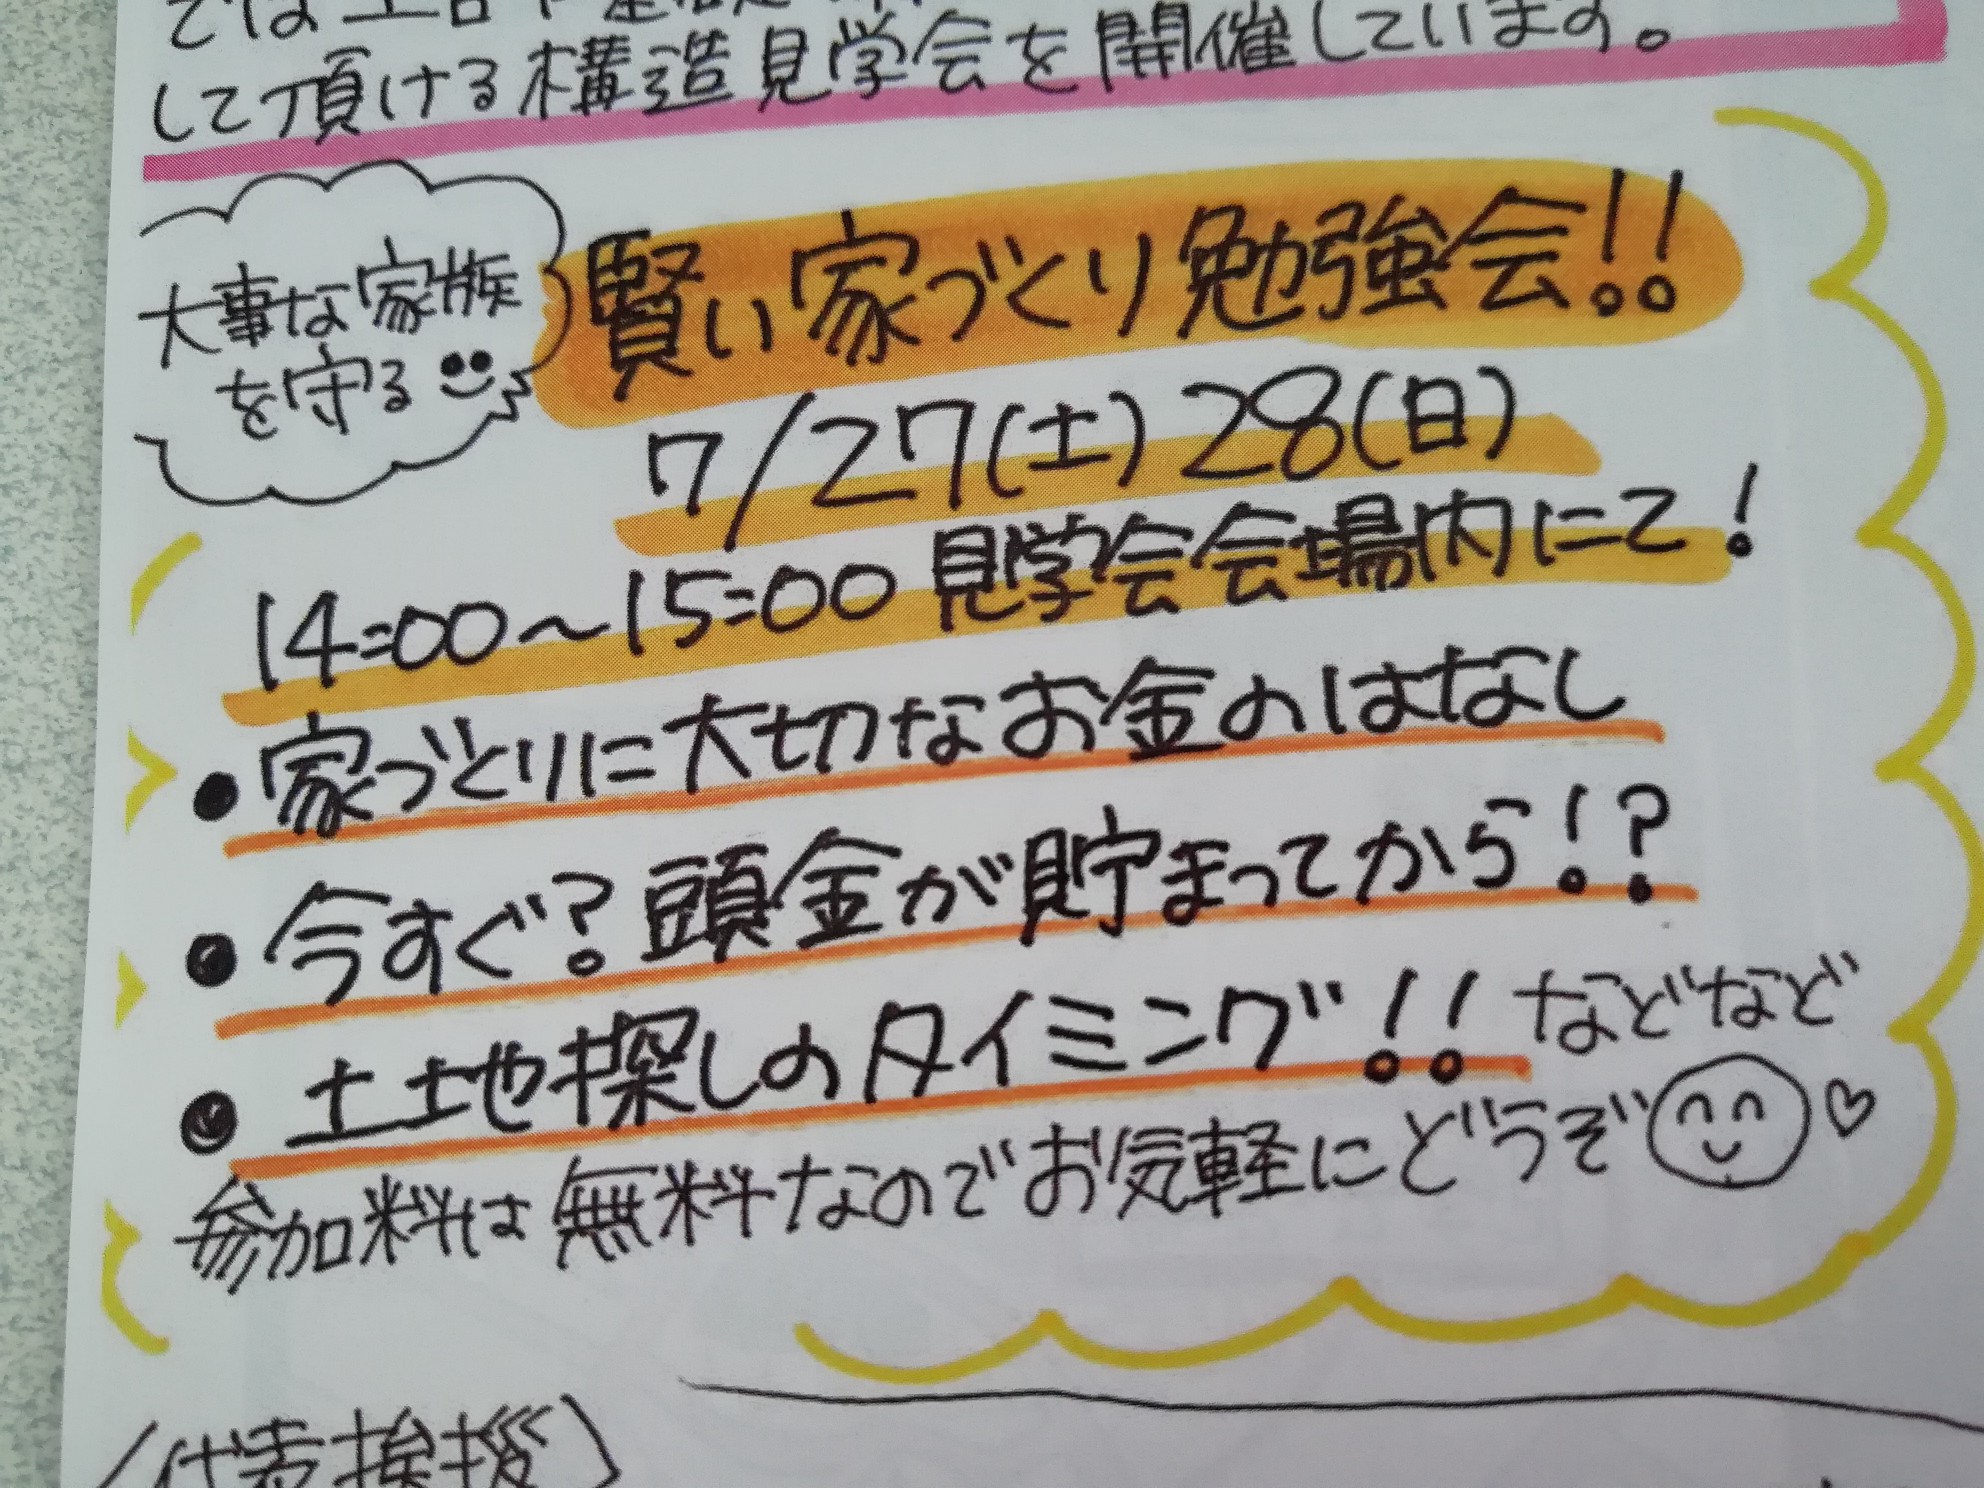 では土日
して頂ける構造見学会を開催しています。
大事な家族
を守る
賢い家づくり勉強会!!
7/27(土) 28(日)
14:00~15:00 見学会会場内にて!
• 家づくりに大切なお金のはなし
• 今すぐ?頭金が貯まってから!?
• 土地探しのタイミング!! などなど
参加料は無料なのでお気軽にどうぞ♡
代表挨拶